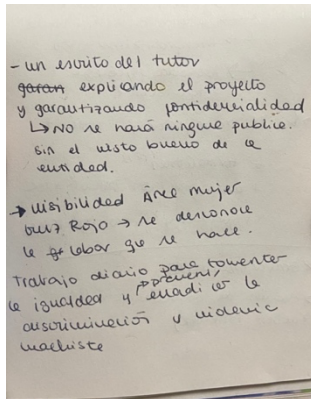 - un escrito del tutor
garan explicando el proyecto
y garantizando confidencialidad
↳ No se hará ningune public.
sin el visto bueno de la
entidad.
→ visibilidad Área mujer
Cruz Rojo → se desconoce
la labor que se hace.
Trabajo diario para fomenter
la igualdad y prevenir, erradicar la
discriminación y violencia
machiste